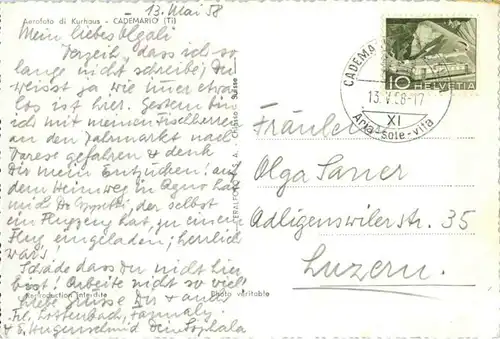 13. Mai 58
Aerofoto di Kurhaus - CADEMARIO (Ti)
Mein liebes Olgali
Verzeih, dass ich so
lange nicht schreibe; Du
weisst ja wie immer etwas
los ist hier. Gestern bin
ich mit meinen
an den Jahrmarkt nach
Varese gefahren & denk
Dir mein Entzücken! auf
dem Heimweg in Agno hat
mich Dr. der selbst
ein Flugzeug hat, zu einem
Flug eingeladen; herrlich
wars.
Schade dass Du nicht hier
bist! Arbeite nicht so viel
Liebe Grüsse Dir & auch
Frl. Lottenbach,
& E. Hugenschmid Dein
Reproduction interdite
Photo véritable
S. A. - Chiasso Suisse
CADEMA
13.V.58-17
XI
Aria-sole-vita
10 HELVETIA
Fräulein
Olga Saner
Adligenswilerstr. 35
Luzern.